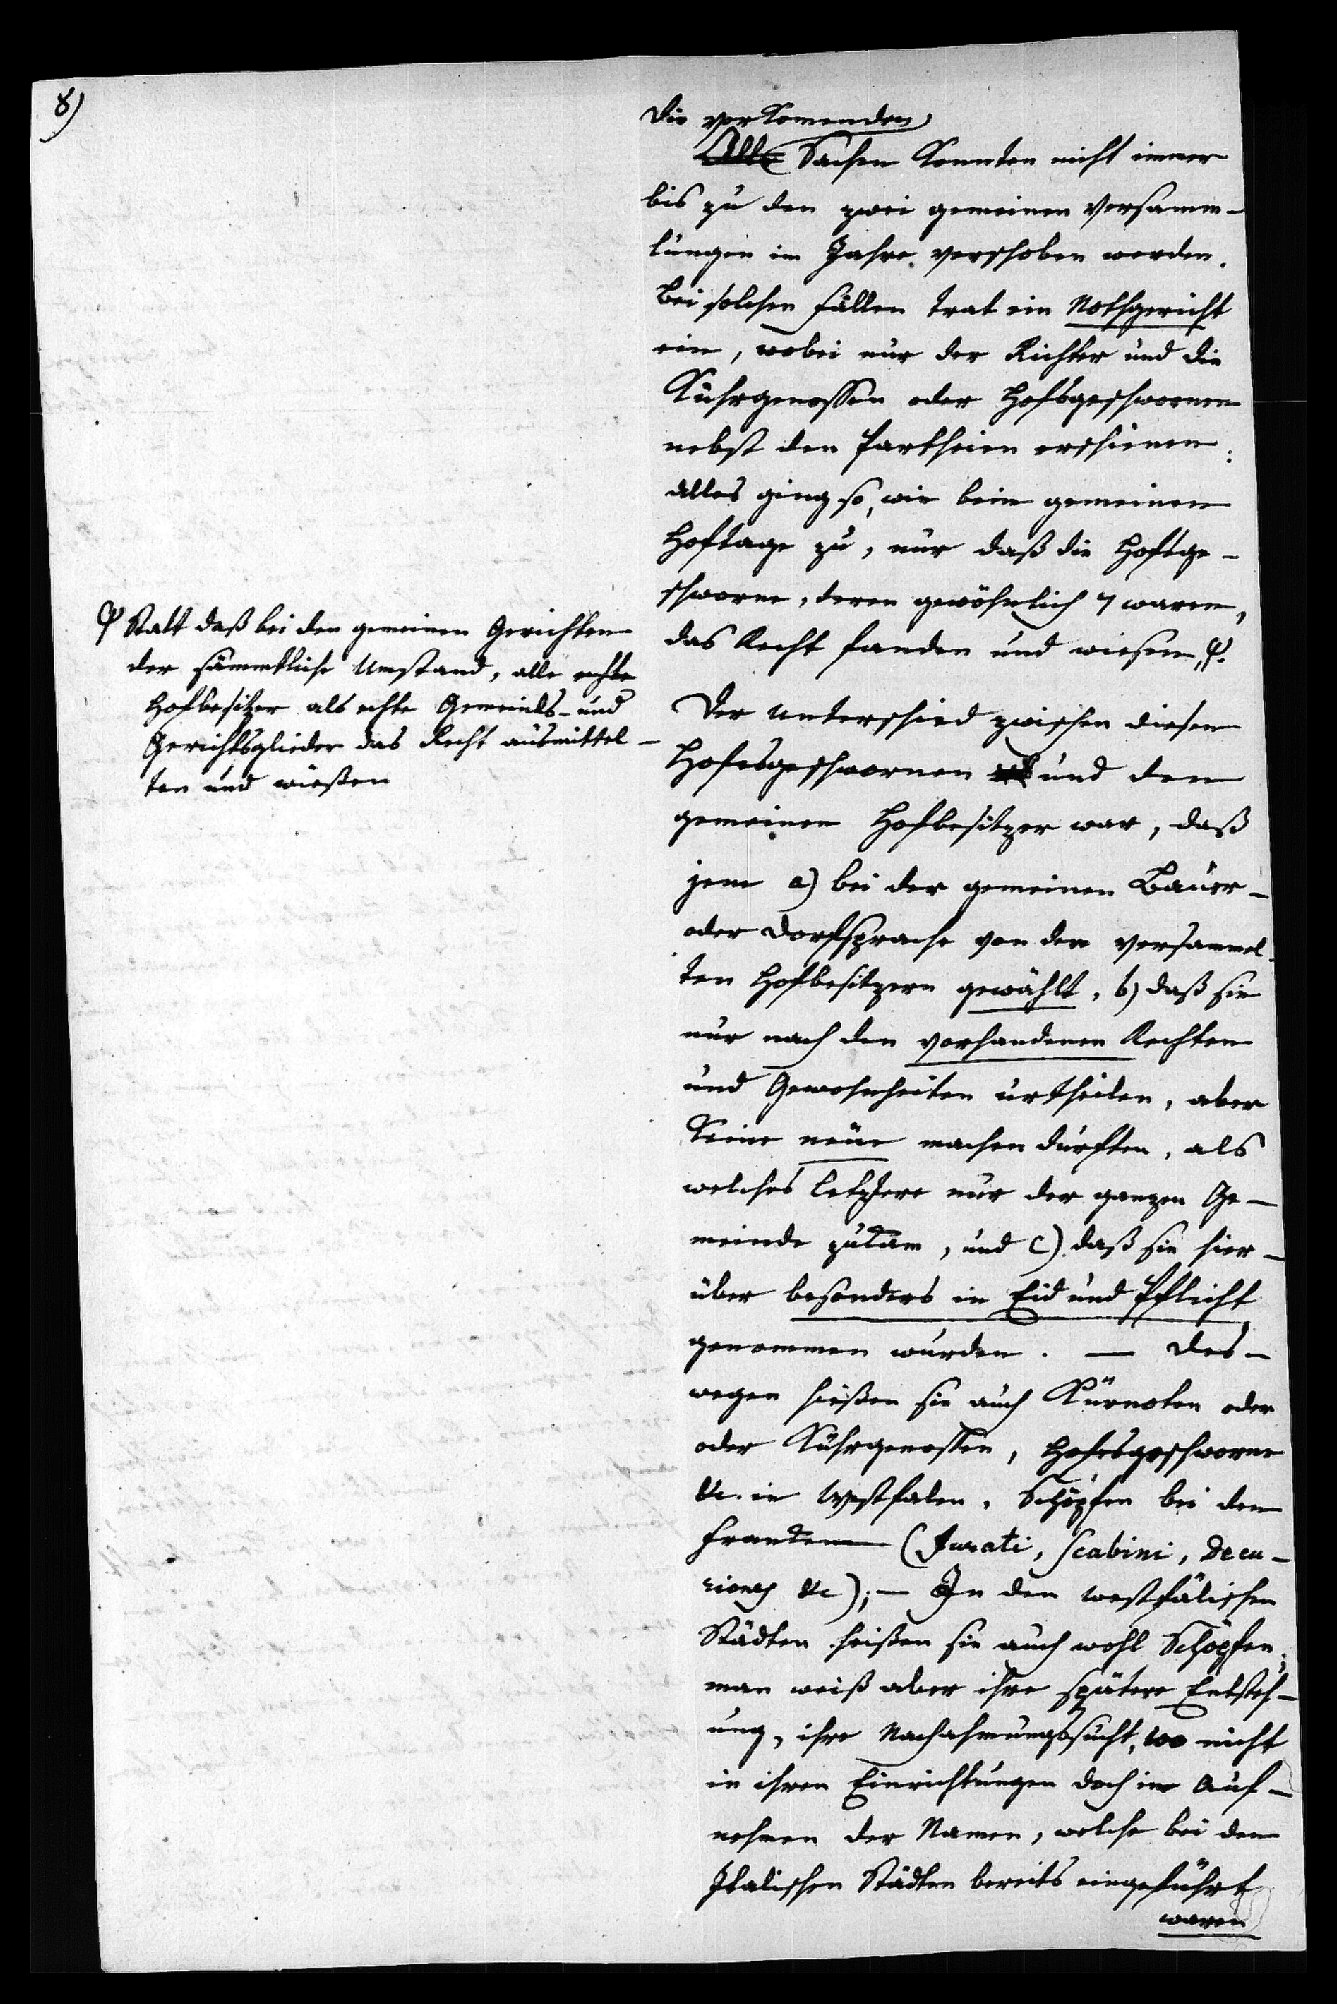 8)
die vorkomenden
Alle Sachen konnten nicht immer
bis zu den zwei gemeinen Versamm-
lungen im Jahre verschoben werden.
Bei solchen Fällen trat ein Nothgericht
ein, wobei nur der Richter und die
Kührgenossen oder Hofsgeschwornen
nebst den Partheien erschienen:
alles ging so, wie beim gemeinen
Hoftage zu, nur daß die Hofsge-
schworne, deren gewöhnlich 7 waren,
das Recht fanden und wiesen, φ.
φ Statt daß bei den gemeinen Gerichten
der sämmtliche Umstand, alle echte
Hofbesitzer als echte Gemeinds- und
Gerichtsglieder das Recht ausmittel-
ten und wießen
Der Unterschied zwischen diesen
Hofesgeschwornen und den
gemeinen Hofbesitzer war, daß
jene a) bei der gemeinen Bauer-
oder Dorfsprache von den versammel-
ten Hofbesitzern gewählt, b) daß sie
nur nach den vorhandenen Rechten
und Gewohnheiten urtheilen, aber
keine neue machen durften, als
welches letztere nur der ganzen Ge-
meinde zukam, und c) daß sie hier-
über besonders in Eid und Pflicht
genommen wurden. — Des-
wegen hießen sie auch Kürnoten oder
oder Kührgenossen, Hofesgeschworne
&c. in Westfalen, Schöpfen bei den
Franken (Jurati, Scabini, Decu-
riones &c); — In den westfälischen
Städten heißen sie auch wohl Schöpfen;
man weiß aber ihre spätere Entsteh-
ung, ihre Nachahmungssucht, wo nicht
in ihren Einrichtungen doch im Auf-
nehmen der Namen, welche bei den
Italischen Städten bereits eingeführt
waren